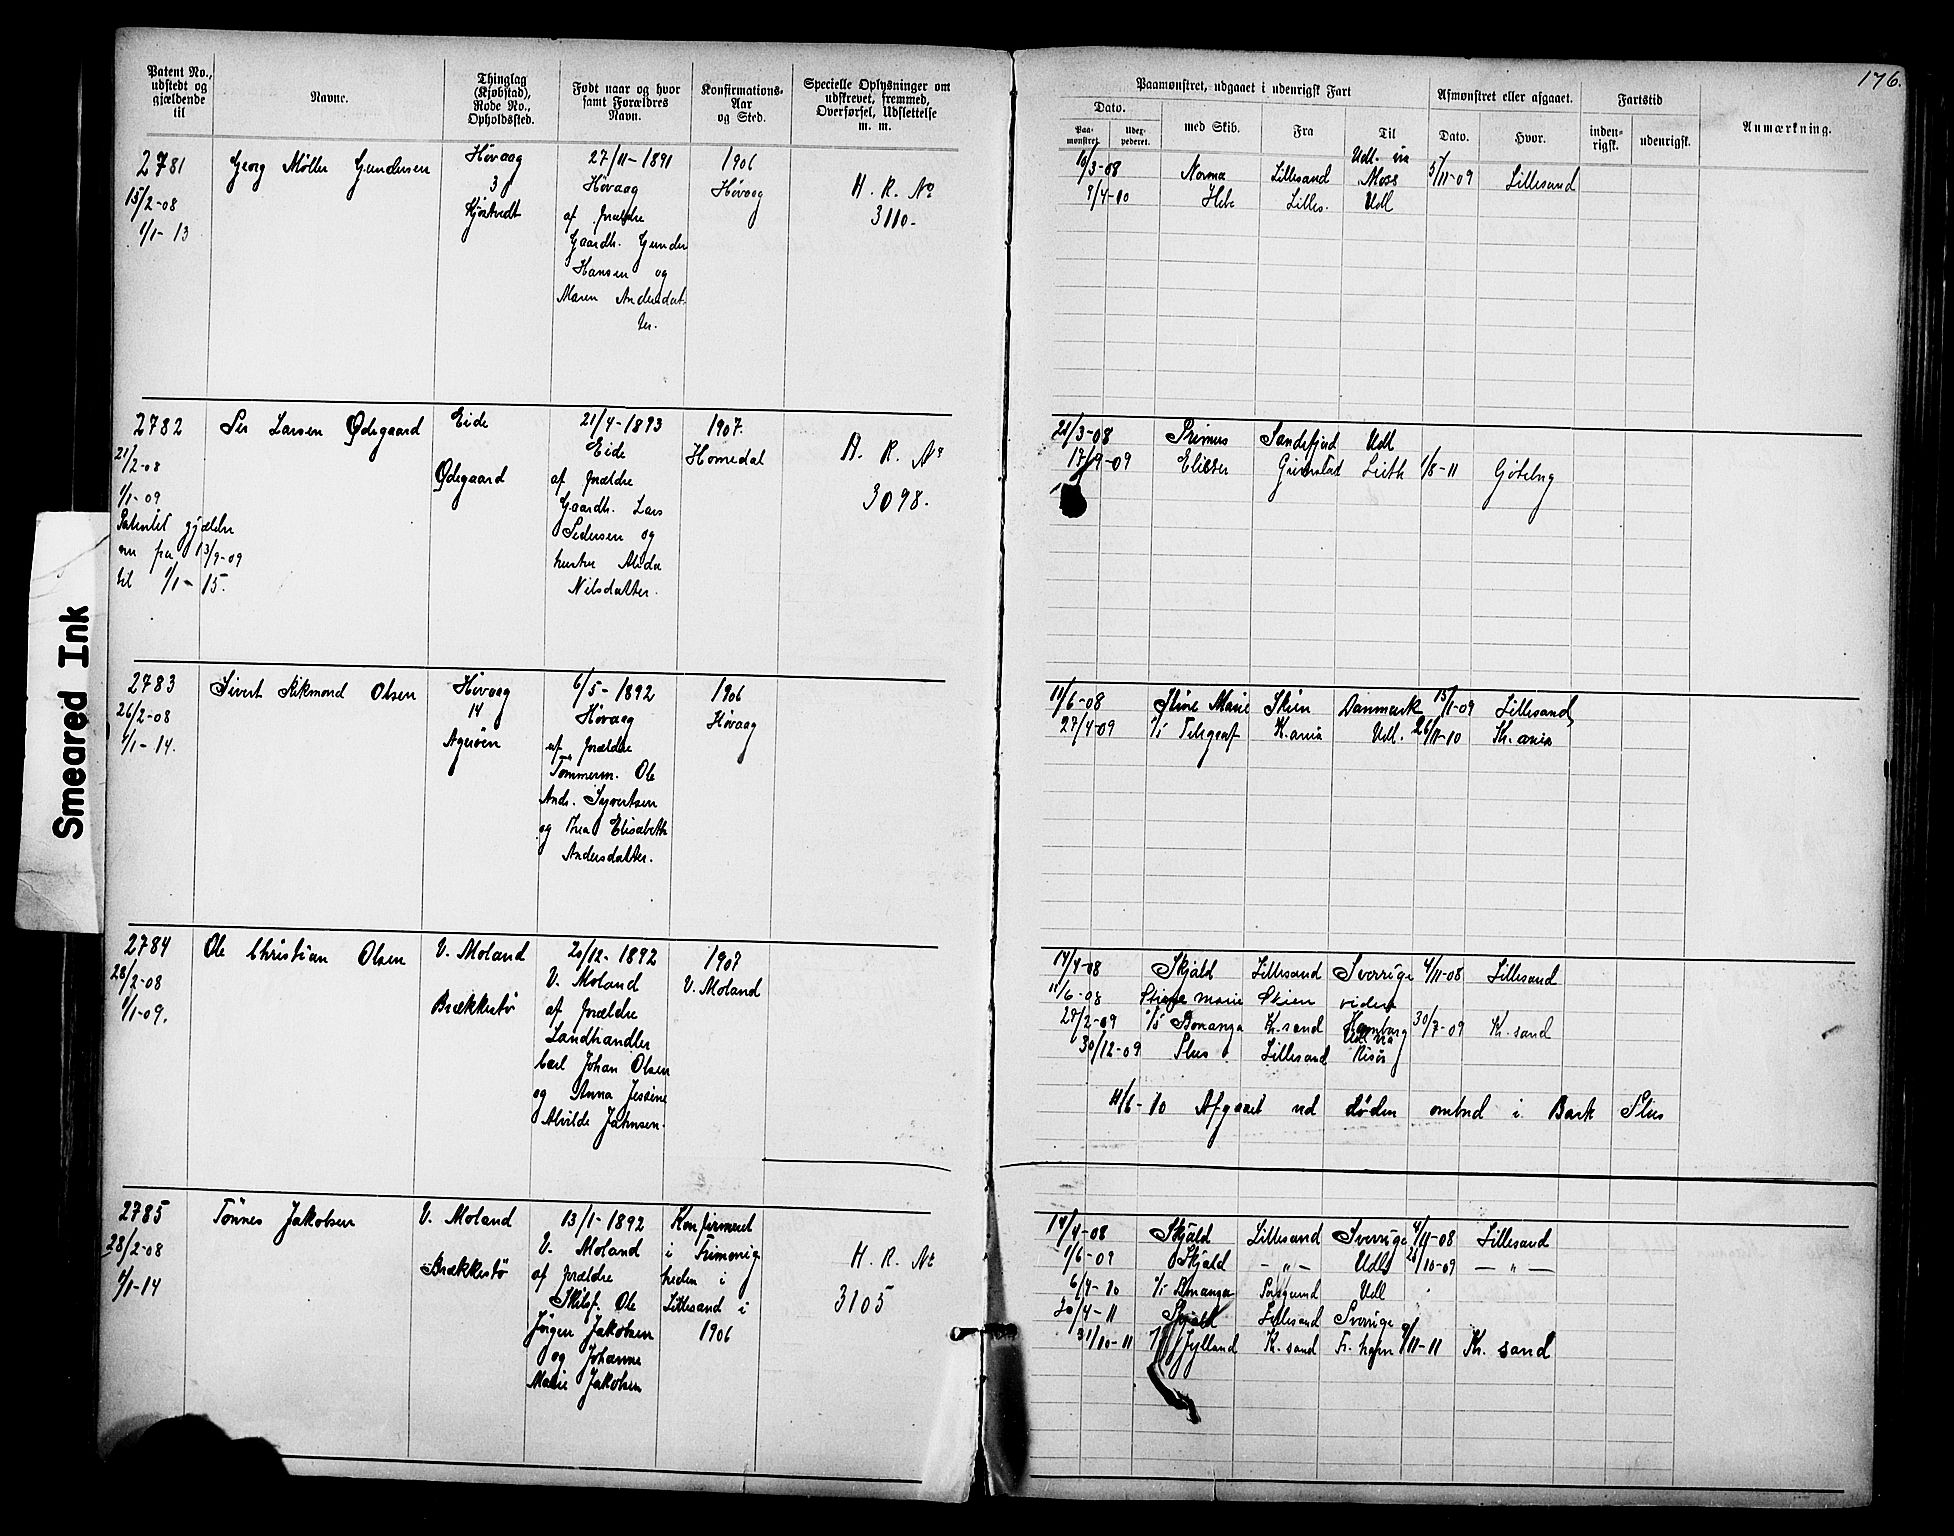 176.
Patent No., udstedt og gjældende til
Navne.
Thinglag (Kjøbstad), Rode No., Opholdssted.
Født naar og hvor samt Forældres Navn.
Konfirmations-Aar og Sted.
Specielle Oplysninger om udskrevet, fremmed, Overførsel, Udslettelse m. m.
Paamønstret, udgaaet i udenrigsk Fart
Dato.
Paa-mønstret.
Udex-pederet.
med Skib.
Fra
Til
Afmønstret eller afgaaet.
Dato.
Hvor.
Fartstid
inden-rigsk.
udenrigsk.
Anmærkning.
2781
15/2-08
1/1-13
Georg Møller Gundersen
Høvaag
3
27/11-1891
Høvaag
af Forældre
Gaardb. Gunder
Hansen og
Maren Andersdat-
ter.
1906
Høvaag
H. R. No
3110.
10/3-08 Norma Lillesand Udl. via Moss 5/11-09 Lillesand
9/4-10 Hebe Lilles. Udl
2782
21/2-08
1/1-09
Patentet gjælder
nu fra 13/9-09
til 1/1-15.
Per Larsen Ødegaard
Eide
Ødegaard
21/4-1893
Eide
af Forældre
Gaardb. Lars
Pedersen og
hustru
Nilsdatter.
1907.
Homedal
H. R. No
3098.
21/3-08 Primus Sandefjord Udl
17/9-09 Grimstad Leith 1/8-11 Gøtebrg
2783
26/2-08
1/1-14.
Sivert Olsen
Høvaag
14
Agerøen
6/5-1892
Høvaag
af Forældre
Tømmerm. Ole
Andr. Syvertsen
og Thea Elisabeth
Andersdatter.
1906
Høvaag
11/6-08 Stine Marie Skien Danmark 15/1-09 Lillesand
27/4-09 Telegraf K.ania Udl. 26/11-10 Kr. ania
2784
28/2-08
1/1-09.
Ole Christian Olsen
V. Moland
Brækkestø
20/12-1892
V. Moland
af Forældre
Landhandler
Carl Johan Olsen
og Anna Jensine
Alvilde Jahnsen.
1907
V. Moland
14/4-08 Skjold Lillesand Sverrige 4/11-08 Lillesand
11/6-08 Stine Marie Skien videre
27/2-09 Bonanza Kr. sand Hamburg 30/7-09 Kr. sand
30/12-09 Plus Lillesand Udl via Risør
11/6-10 Afgaaet ved døden ombrd i Bark Plus
2785
28/2-08
1/1-14
Tønnes Jakobsen
V. Moland
Brækkestø
13/1-1892
V. Moland
af Forældre
Skibsf. Ole
Jørgen Jakobsen
og Johanne
Marie Jakobsen
Konfirmeret
i Frimenig
heden i
Lillesand i
1906
H. R. No
3105
14/4-08 Skjold Lillesand Sverrige 4/11-08 Lillesand
1/6-09 Skjold — „ — Udl 20/10-09 — „ —
6/4-10 Bonanza Porsgrund Udl
20/4-11 Skjold Lillesand Sverrige
31/10-11 Jylland Kr. sand Fr. havn 9/11-11 Kr. sand
Smeared Ink